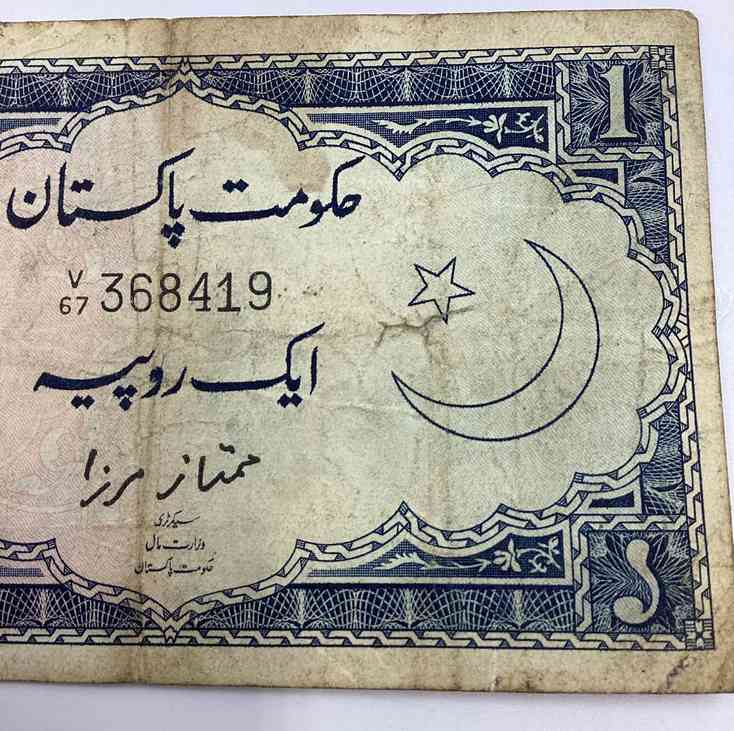 1
حکومت پاکستان
V/67 368419
ایک روپیہ
ممتاز مرزا
سیکرٹری
وزارت مال
حکومت پاکستان
۱